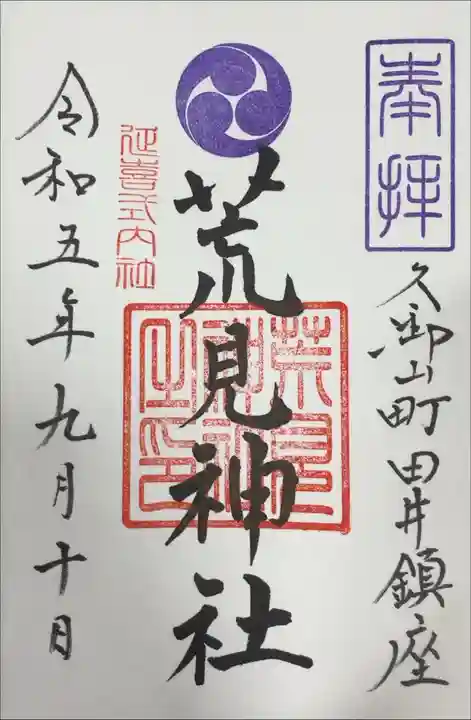 奉拝
久御山町田井鎮座
荒見神社
荒見神社之印
延喜式内社
令和五年九月十日